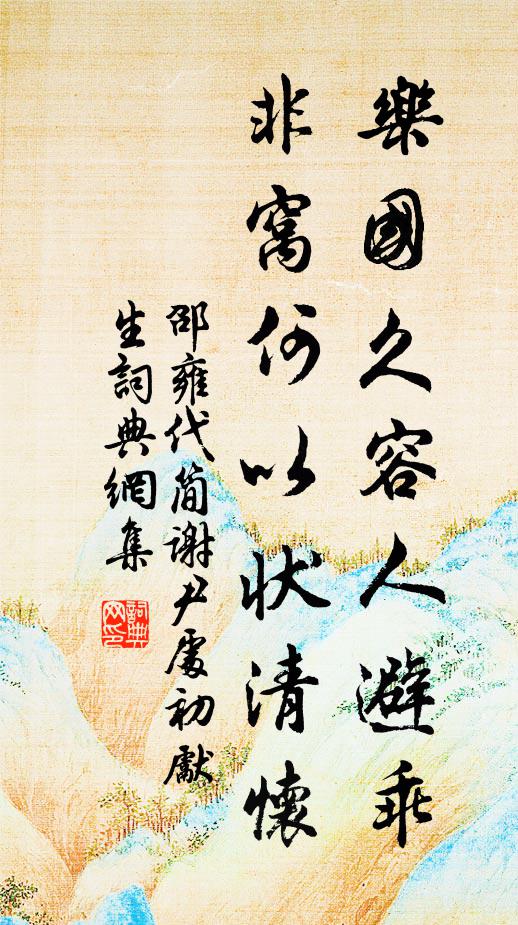 樂國久容人避乖
非窩何以狀清懷
邵雍代簡謝尹處初獻
生詞典網集
詞典網印